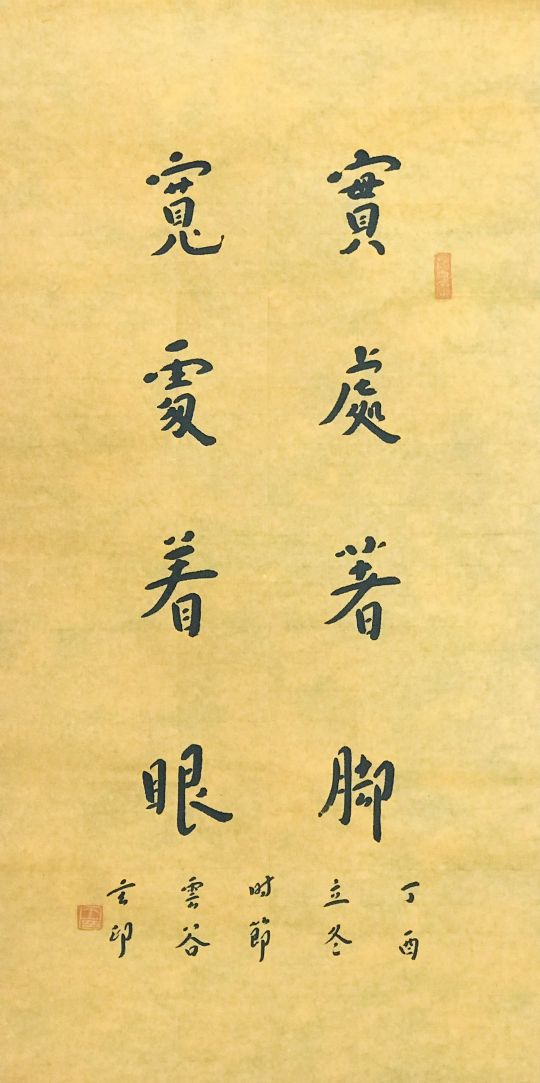 實處著脚
寬處着眼
丁酉
立冬
时節
雲谷
玄印